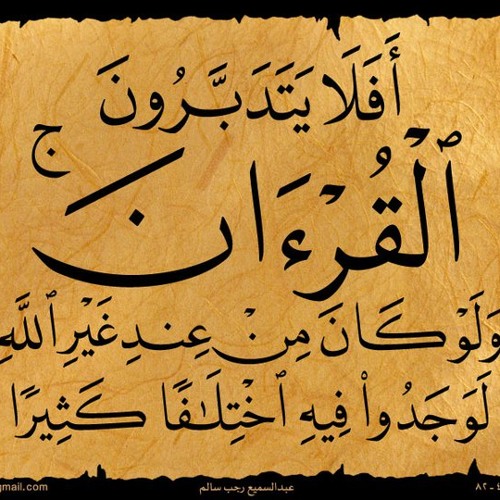 أَفَلَا يَتَدَبَّرُونَ
ٱلْقُرْءَانَ ۚ
وَلَوْ كَانَ مِنْ عِندِ غَيْرِ ٱللَّهِ
لَوَجَدُوا۟ فِيهِ ٱخْتِلَـٰفًا كَثِيرًا
عبدالسميع رجب سالم
gmail.com